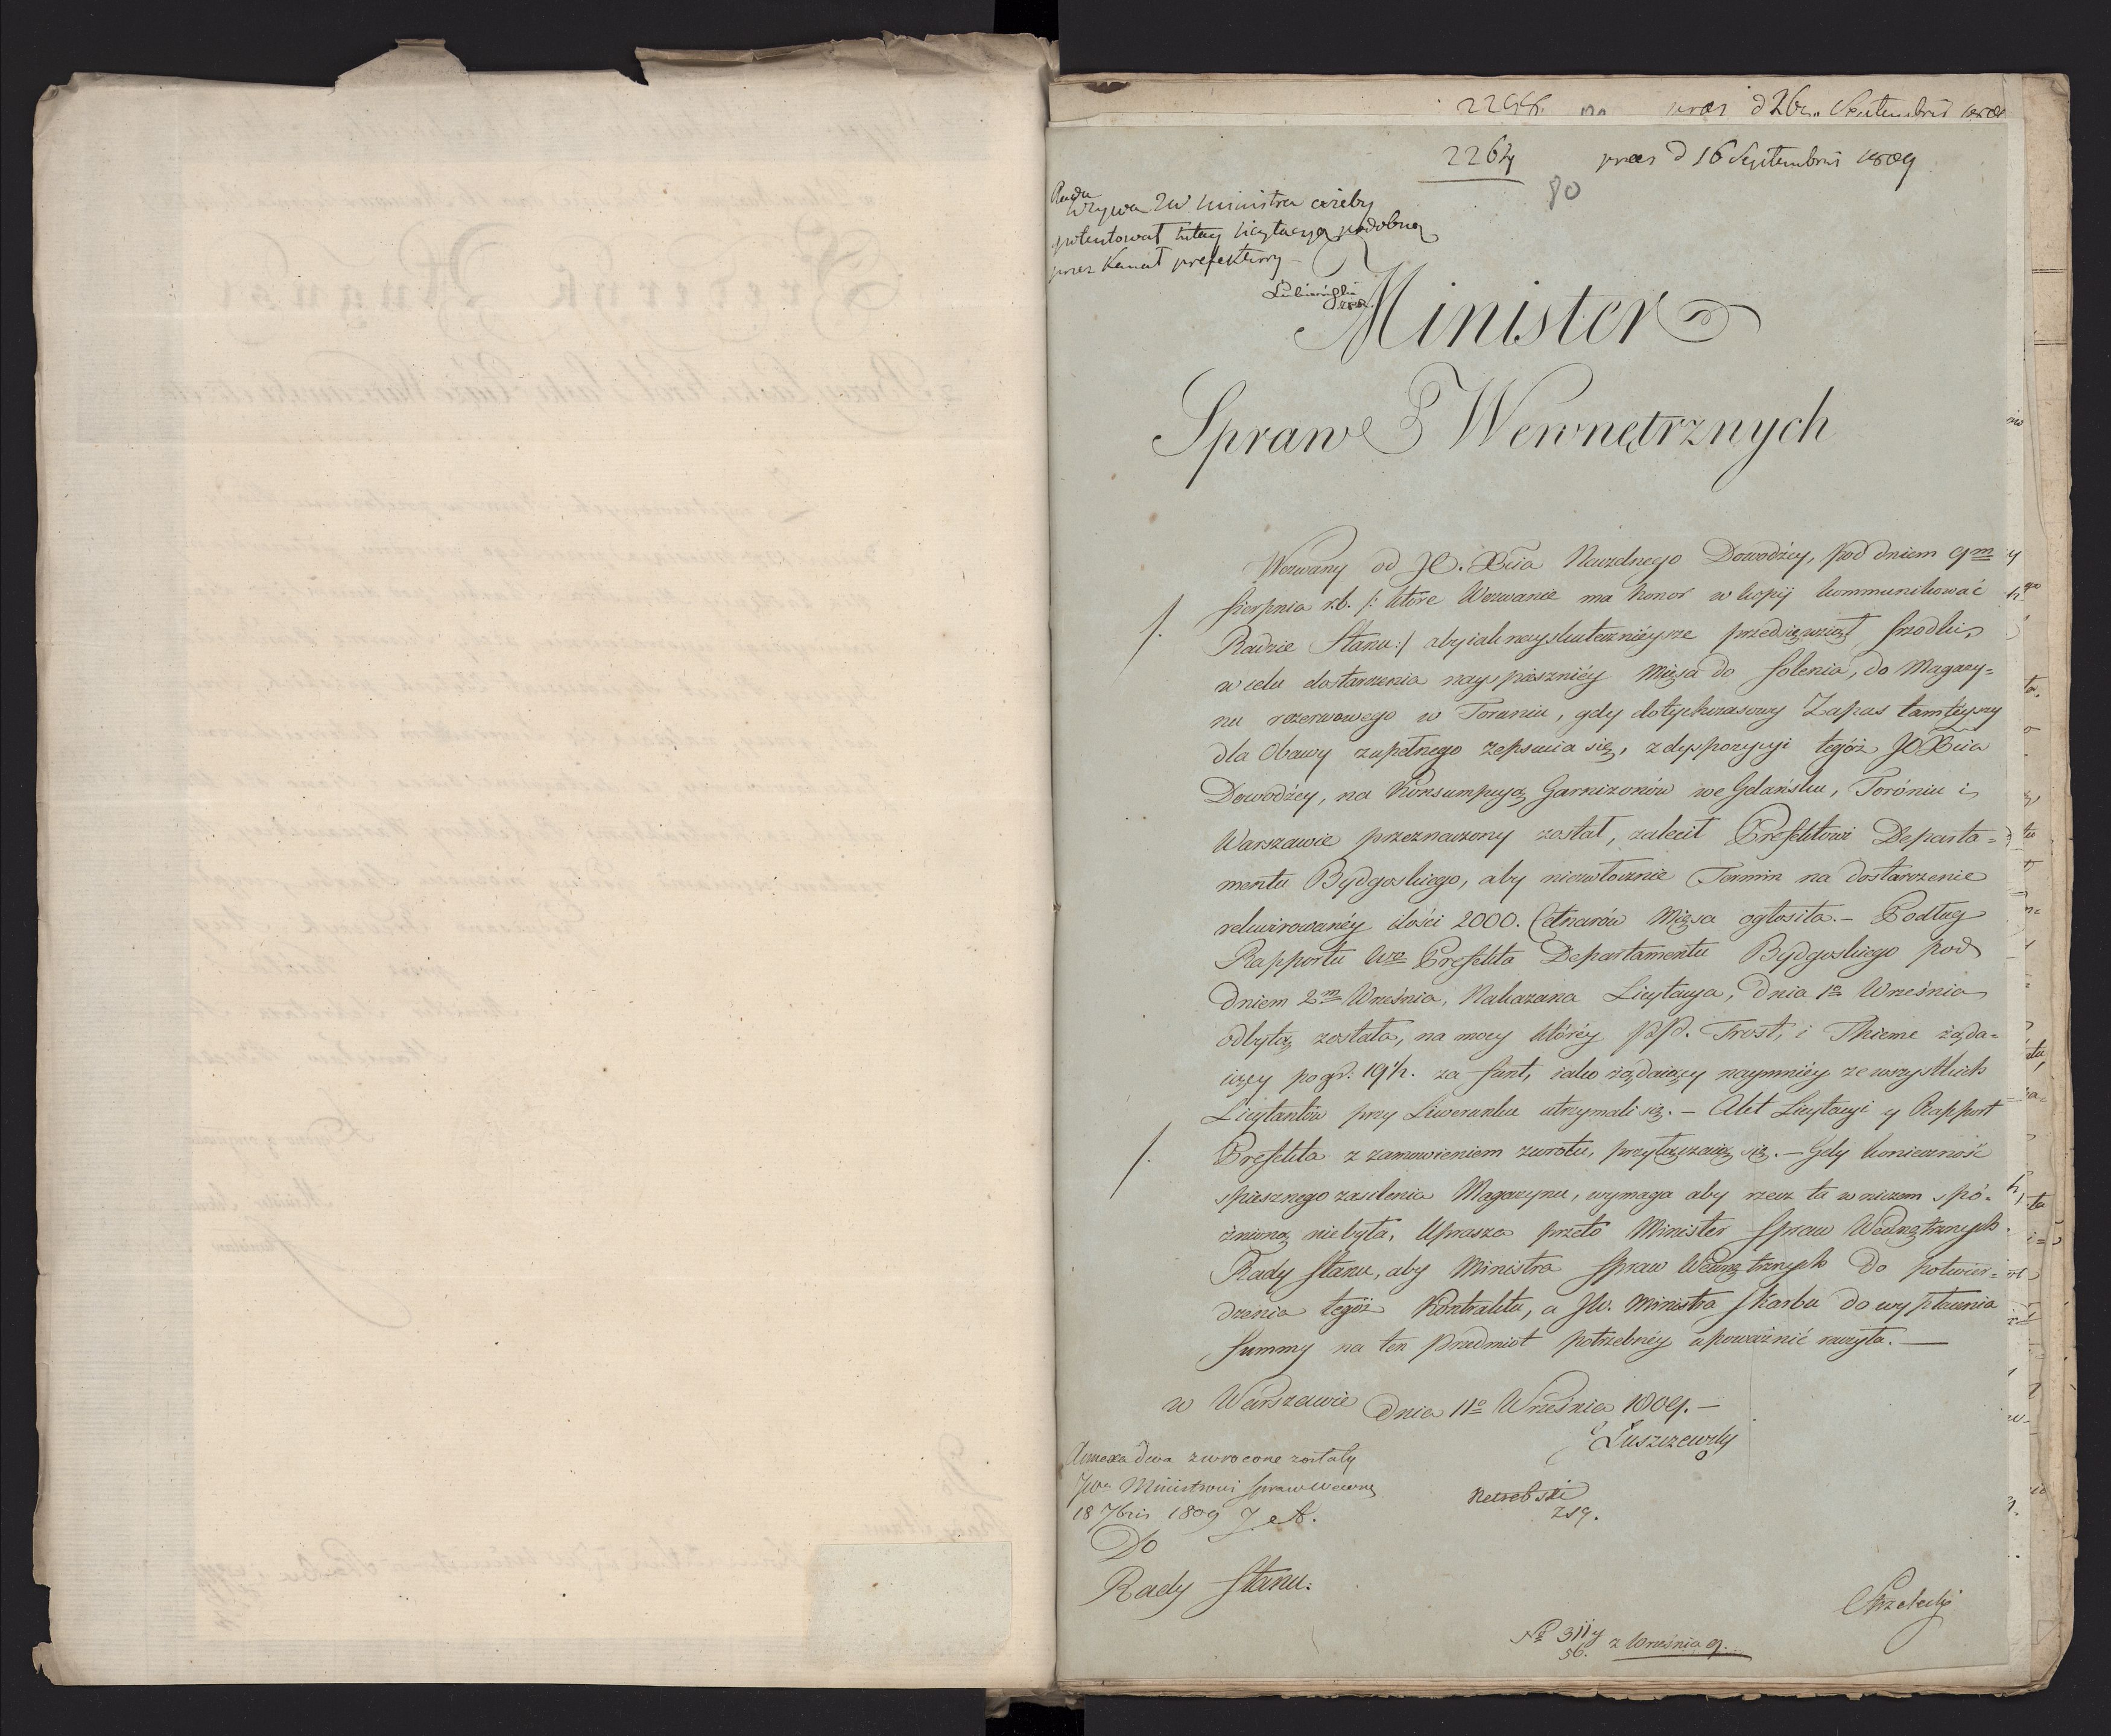 præs d 26. Septembris
2264
præs d 16 Septembris 1809
80
Rada
wzywa JW Ministra ażeby
licytacyą podobną
przez Kanał prefektury –
Łubieński
Minister
Spraw Wewnętrznych
Wezwany od JO. Xcia Naczelnego Dowodźcy, pod dniem 9m
Sierpnia r.b. /: które Wezwanie ma honor w kopij kommunikować
/.
Radzie Stanu :/ aby iak nayskutecznieysze przedsięwziął srzodki,
w celu dostarczenia nayspieszniéy Mięsa do Solenia, do Magazy=
nu rezerwowego w Toruniu, gdy dotychczasowy Zapas tamteyszy
dla Obawy zupełnego zepsucia się, z dyspozycyi tegóż JO Xcia
Dowodźcy, na Konsumpcyą Garnizonów we Gdańsku, Toróniu i
Warszawie przeznaczony został, zalecił Prefektowi Departa=
mentu Bydgoskiego, aby niezwłocznie Termin na dostarczenie
rekwirowanéy ilości 2000. Cetnarów Mięsa ogłosiła. – Podług
Rapportu Wgo Prefekta Departamentu Bydgoskiego pod
dniem 2m Września, Nakazana Licytacya, dnia 1o Września
odbytą została, na mocy któréy PP. Trost, i Thieme żąda=
iący po gr: 19½. za funt, iako żądaiący naymniéy ze wszystkich
Licytantów przy Liwerunku utrzymali się. – Akt Licytacyi y Rapport
/.
Prefekta z zamowieniem zwrotu, przyłączaią się. – Gdy konieczność
spiesznego zasilenia Magazynu, wymaga aby rzecz ta w niczem spó=
źnioną niebyła, Uprasza przeto Minister Spraw Wewnętrznych
Rady Stanu, aby Ministra Spraw Wewnętrznych do potwier=
dzenia tegóż Kontraktu, a JW. Ministra Skarbu do wypłacenia
Summy na ten Przedmiot potrzebnéy upoważnić raczyła. –
w Warszawie dnia 11o Września 1809. –
Łuszczewsky
Annexa dwa zwrocone zostały
JWu Ministrowi Spraw Wewnę
18 7bris 1809
Do
Rady Stanu.
No 311y
56.
z Września 9.